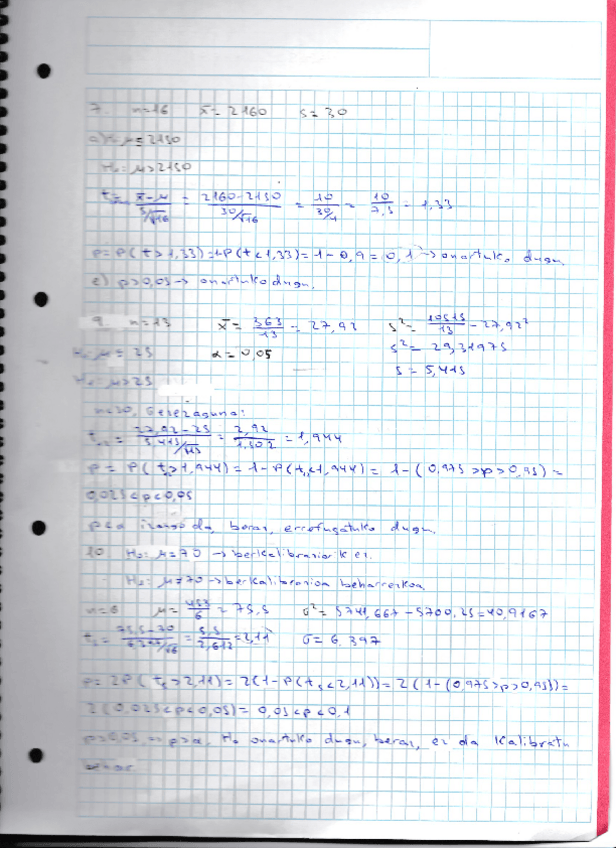 7. n=16 x̄=2160 s=30
a) H₀: μ≤2150
H₁: μ>2150
t = x̄-μ / s/√16 = 2160-2150 / 30/√16 = 10 / 30/4 = 10 / 7,5 = 1,33
p=P(t>1,33)=1-P(t<1,33)=1-0,9=0,1 → onartuko dugu.
e) p>0,05 → onartuko dugu.
9. n=13 x̄ = 363/13 = 27,92 s² = 10515/13 - 27,92²
μ = 25 α=0,05 s² = 29,31975
μ>25 s = 5,415
n<30, ezezaguna:
t = 27,92-25 / 5,415/√13 = 2,92 / 1,502 = 1,944
p = P(t>1,944) = 1-P(t<1,944) = 1-(0,975>p>0,95) =
0,025<p<0,05
p<α izango da, beraz, errefusatuko dugu.
10. H₀: μ=70 → berkalibraziorik ez.
H₁: μ≠70 → berkalibrazioa beharrezkoa.
n=6 μ = 453/6 = 75,5 σ² = 5741,667-5700,25=40,9167
t = 75,5-70 / 6,397/√6 = 5,5 / 2,612 = 2,11 σ=6.397
p=2P(t₅>2,11)=2(1-P(t₅<2,11))=2(1-(0,975>p>0,95))=
2(0,025<p<0,05)=0,05<p<0,1
p>0,05 => p>α, H₀ onartuko dugu, beraz, ez da kalibratu
behar.